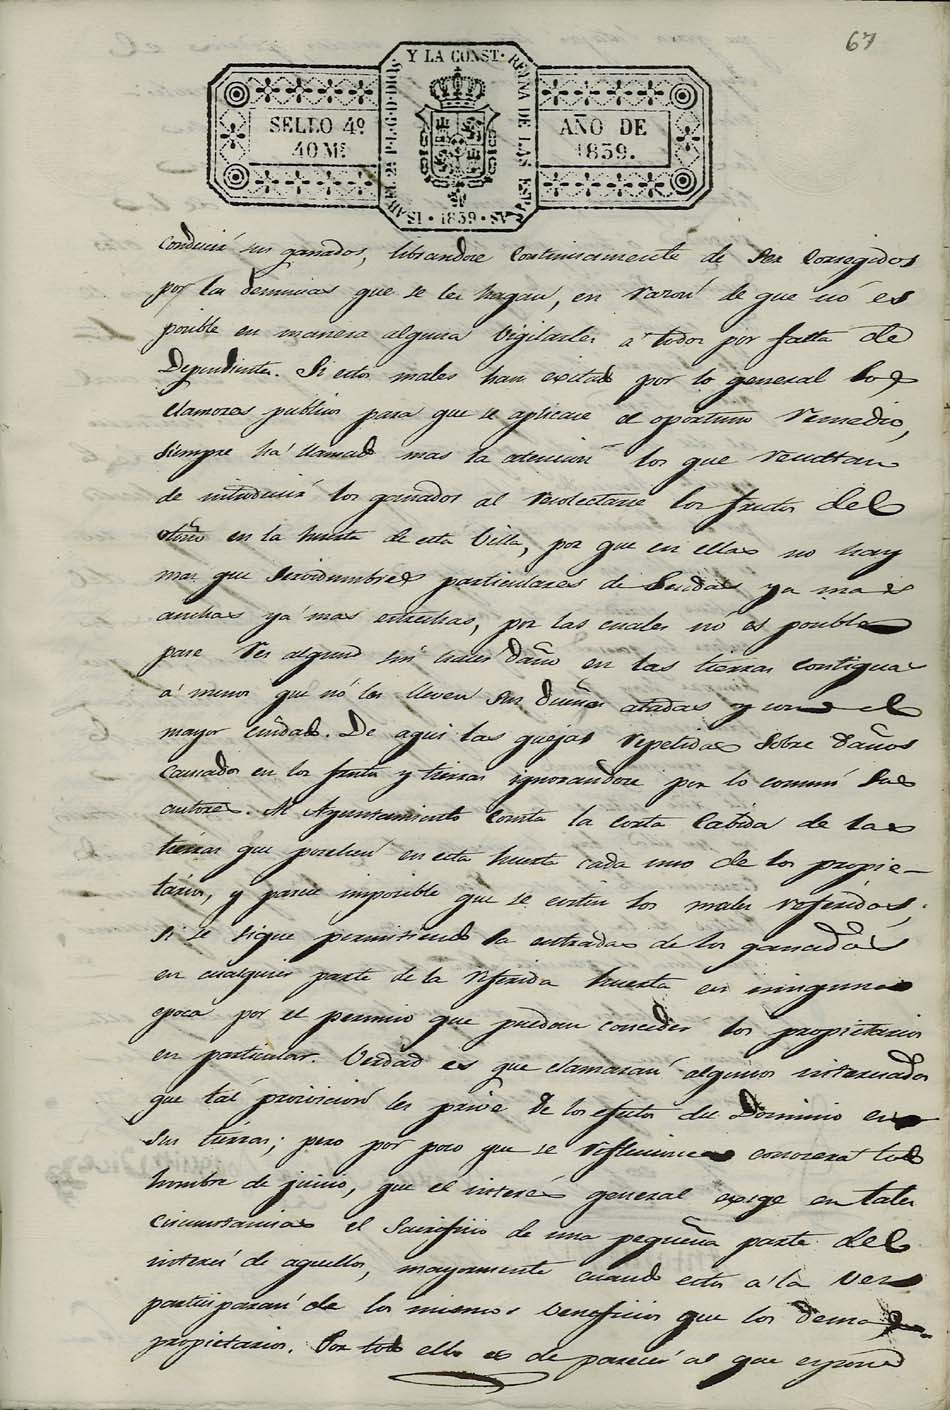 67
Y LA CONST. REYNA DE LAS ESPAS
ISABEL 2ª P.L.G.D.DIOS
SELLO 4º
40 Ms
AÑO DE
1839.
1839
conducir sus ganados, librandose continuamente de ser corregidos
por las denuncias que se les hagan, en razon de que nó es
posible en manera alguna vigilarles á todos por falta de
Dependientes. Si estos males han excitado por lo general los
clamores publicos para que se aplicase el oportuno remedio,
siempre há llamado mas la atencion los que resultan
de introducir los ganados al recolectarse los frutos del
otoño en la huerta de esta Villa, por que en ellas no hay
mas que servidumbres particulares de sendas ya mas
anchas yá mas estrechas, por las cuales no es posible
pase res alguna sin hacer daño en las tierras contiguas
á menos que nó las lleven sus dueños atadas y con el
mayor cuidado. De aqui las quejas repetidas sobre daños
causados en los frutos y tierras ignorandose por lo comun sus
autores. Al Ayuntamiento consta la corta cabida de las
tierras que poseen en esta huerta cada uno de los propie-
tarios, y parece imposible que se eviten los males referidos,
si se sigue permitiendo la entrada de los ganados
en cualquier parte de la referida huerta en ninguna
epoca por el permiso que puedan conceder los propietarios
en particular. Verdad es que clamarán algunos interesados
que tál provision les prive de los efectos del Dominio en
sus tierras; pero por poco que se reflecsione conocerá todo
hombre de juicio, que el interés general exige en tales
circunstancias el sacrificio de una pequeña parte del
interes de aquellos, mayormente cuando estos á la vez
participarán de los mismos beneficios que los demas
propietarios. Por todo ello es de parecer el que espone